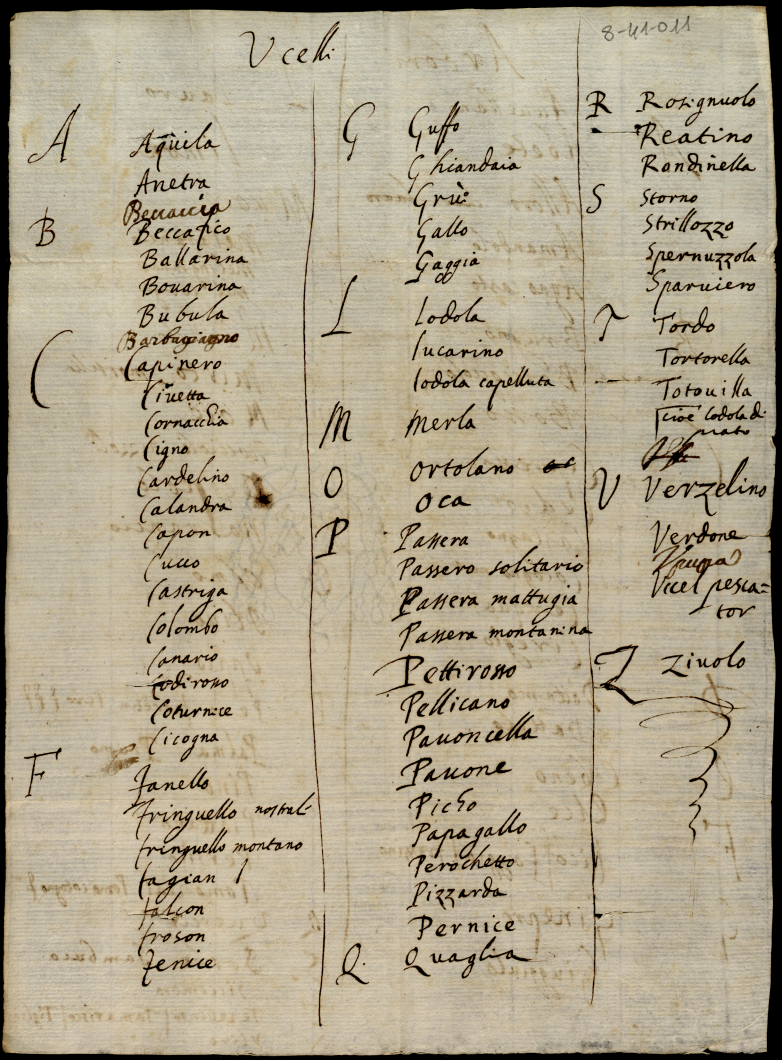 8-41-011
Ucelli
A
Aquila
Anetra
Beccaccia
B
Beccafico
Ballarina
Bouarina
Bubula
Barbagiagno
C
Capinero
Ciuetta
Cornacchia
Cigno
Cardelino
Calandra
Capon
Cucco
Castriga
Colombo
Canario
Codirosso
Coturnice
Cicogna
F
Fanello
Fringuello nostral
fringuello montano
fagian
falcon
froson
Fenice
G
Guffo
Ghiandaia
Grù
Gallo
Gaggia
L
Lodola
lucarino
lodola capelluta
M
Merla
O
Ortolano
Oca
P
Passera
Passero solitario
Passera mattugia
Passera montanina
Pettirosso
Pellicano
Pauoncella
Pauone
Picho
Papagallo
Perochetto
Pizzarda
Pernice
Q
Quaglia
R
Rosignuolo
Reatino
Rondinella
S
Storno
Strillozzo
Spernuzzola
Sparuiero
T
Tordo
Tortorella
Totouilla
cioè lodola di
prato
V
Verzelino
Verdone
Vpupa
Vccel pesca=
tor
Z
Ziuolo